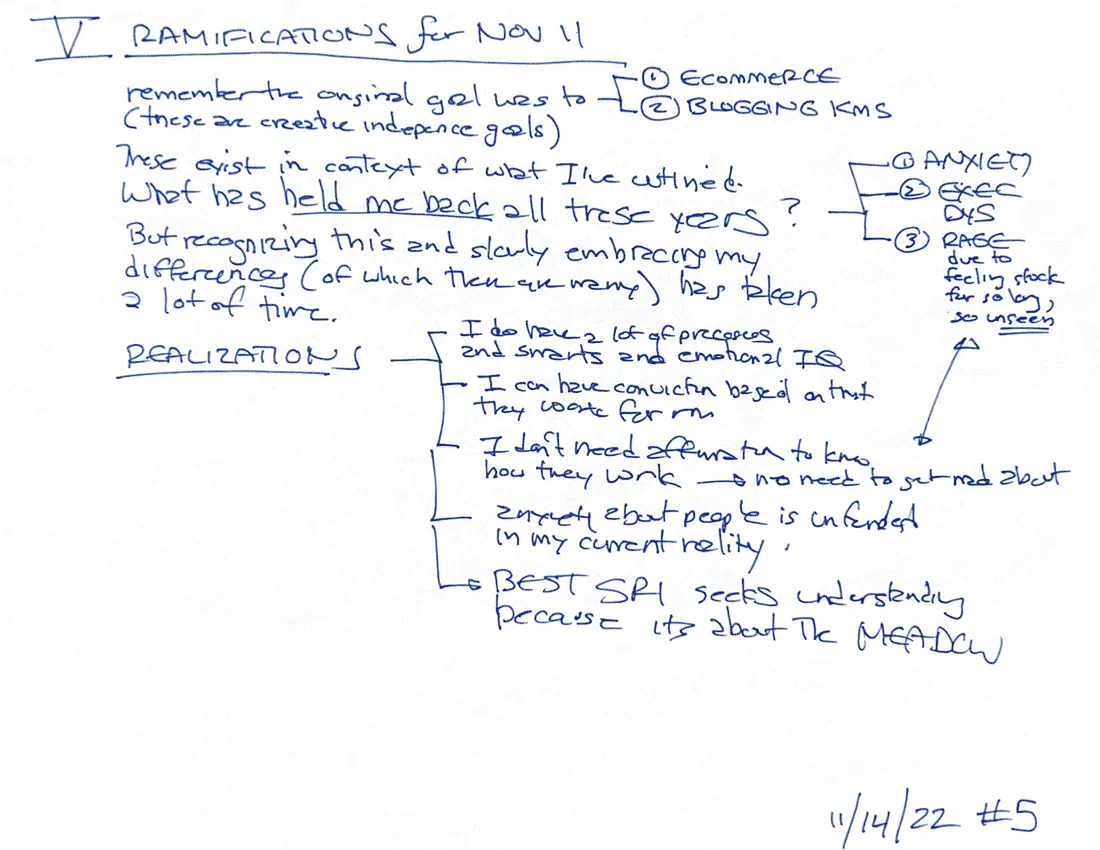 V RAMIFICATIONS for NOV 11
remember the original goal was to
① ECOMMERCE
② BLOGGING KMS
(these are creative indepence goals)
These exist in context of what I've outlined.
What has held me back all these years?
① ANXIETY
② EXEC
DYS
③ RAGE
due to
feeling stuck
for so long,
so unseen
But recognizing this and slowly embracing my
differences (of which there are many) has taken
a lot of time.
REALIZATIONS
I do have a lot of
and smarts and emotional IQ
I can have conviction based on that
they work for me
I don't need affirmation to know
how they work → no need to get mad about
anxiety about people is unfounded
in my current reality.
BEST SRI seeks understanding
because its about The MEADOW
11/14/22 #5